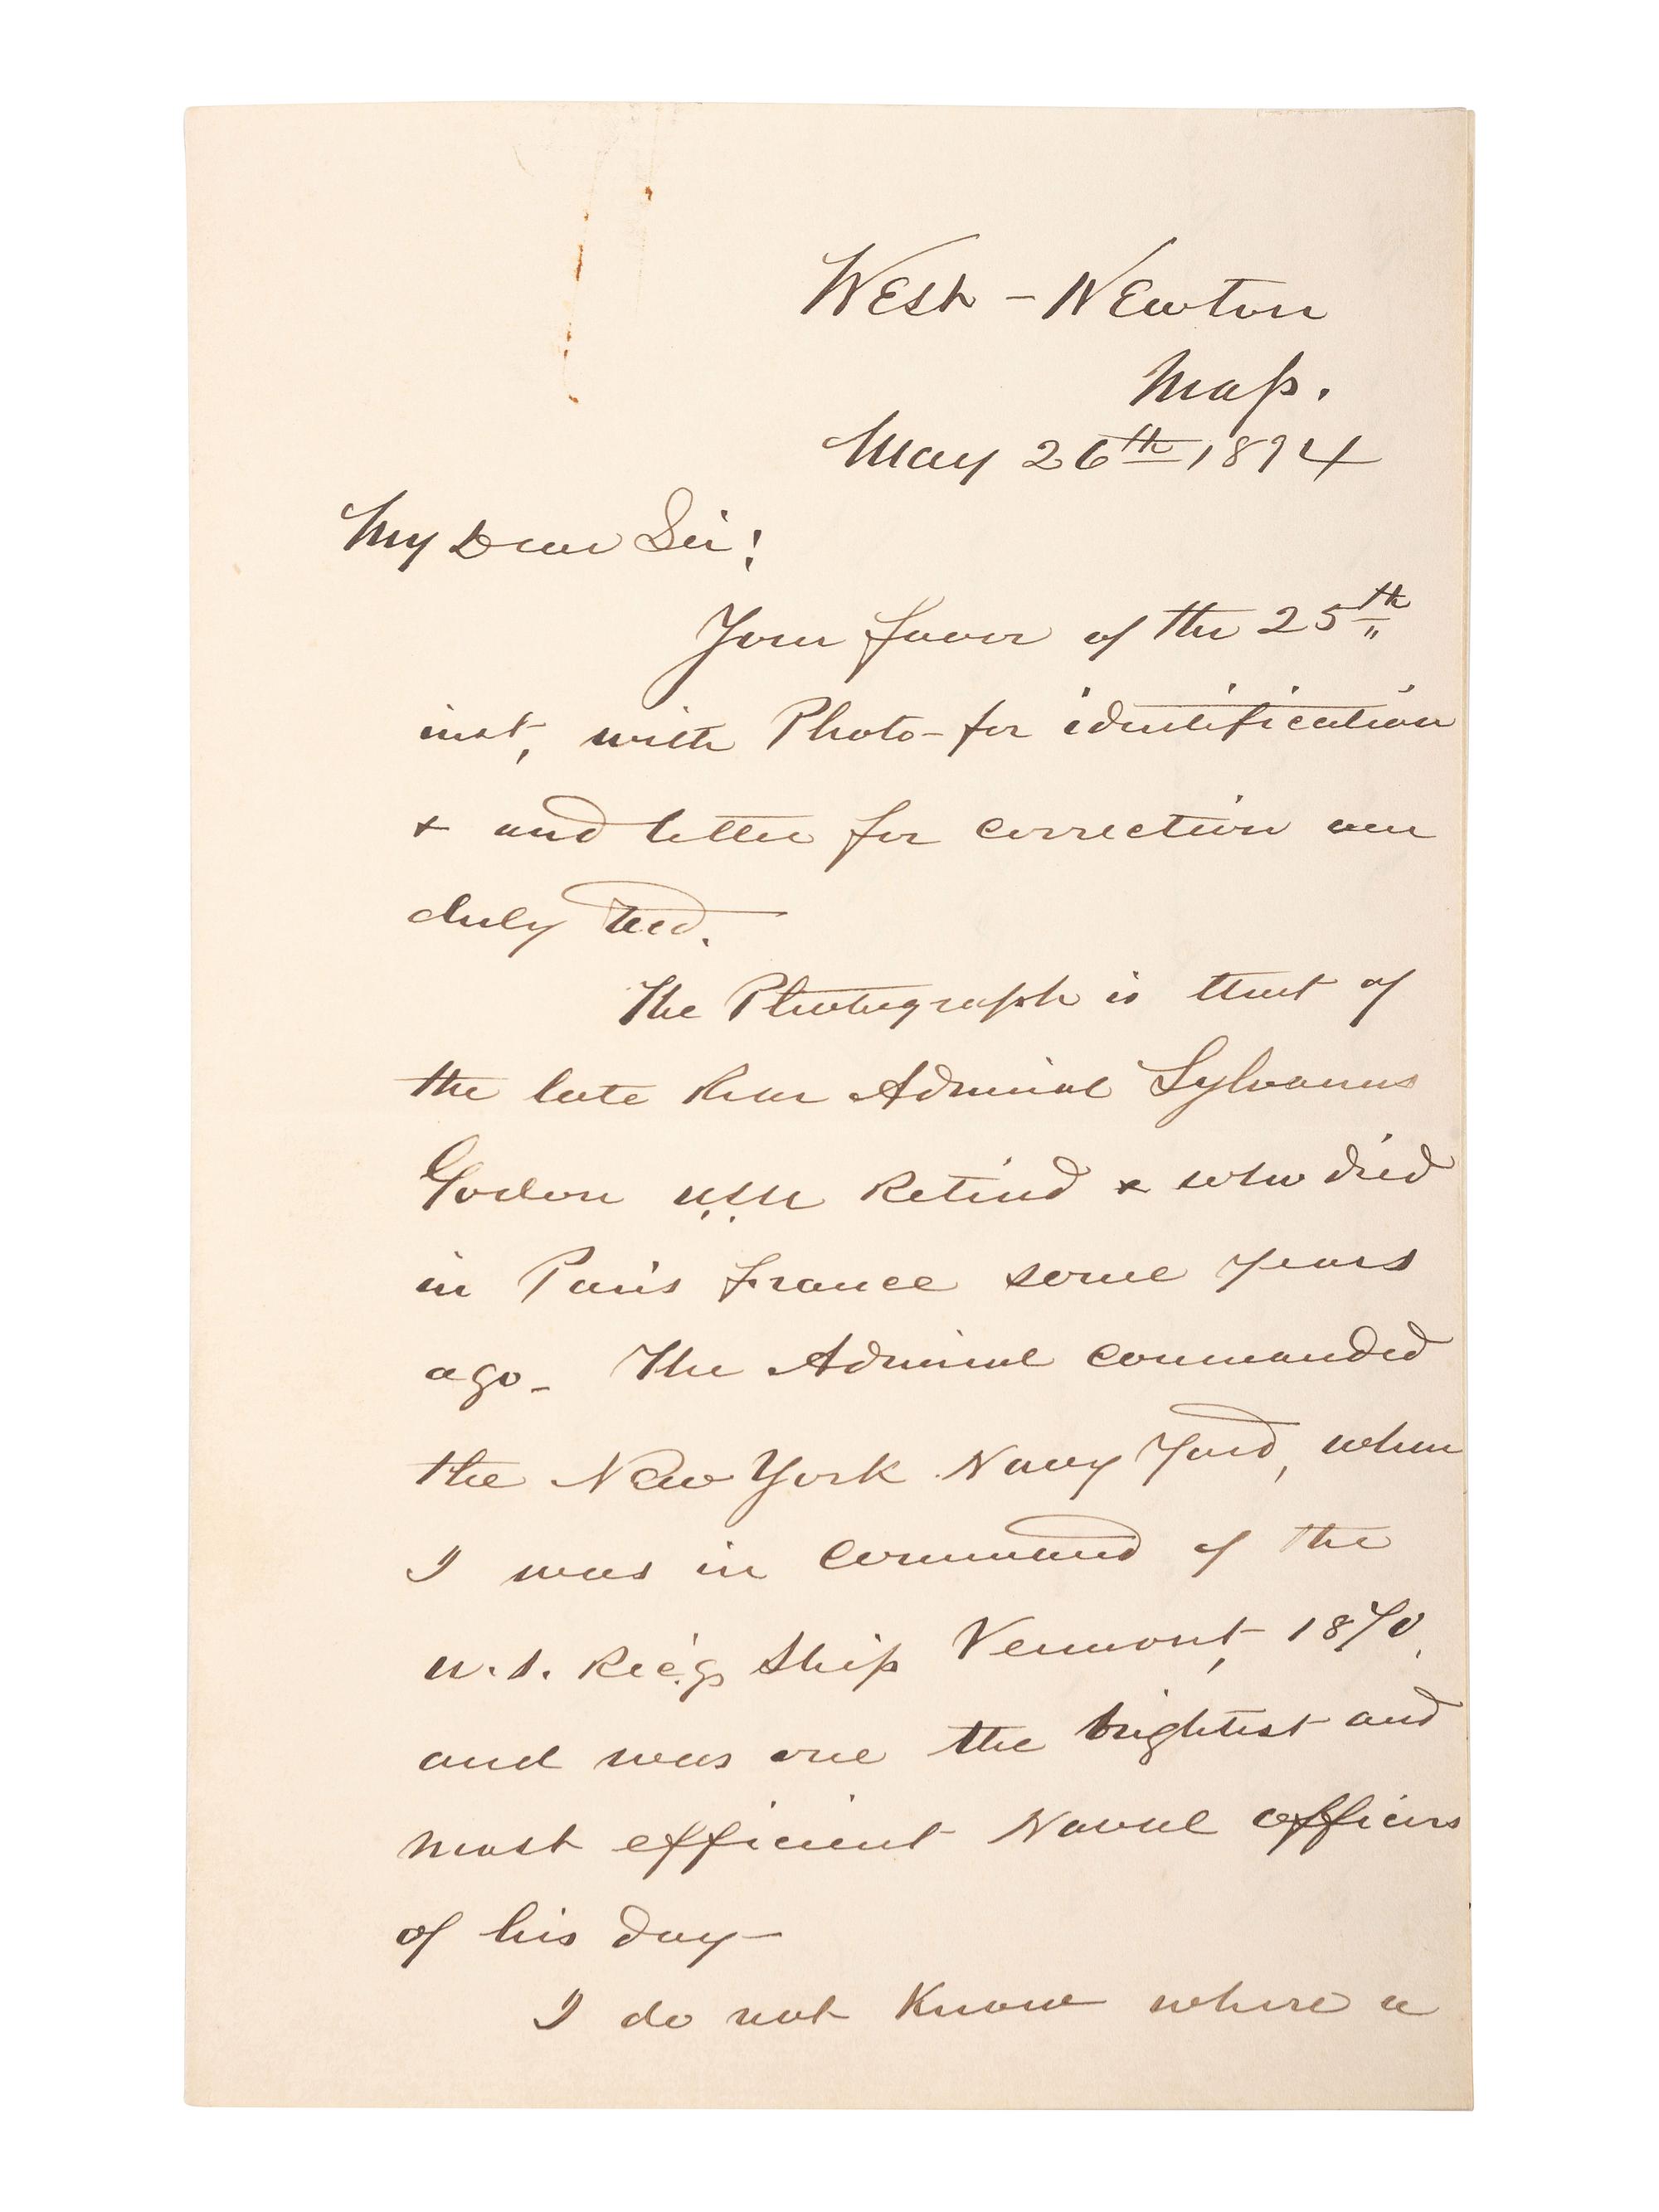 West - Newton
Mass.
May 26th 1894
My Dear Sir!
Your favor of the 25th
inst, with Photo - for identification
& and letter for correction are
duly recd.
The Photograph is that of
the late Rear Admiral Sylvanus
Godon U.S.N Retired & who died
in Paris France some years
ago - The Admiral commanded
the New York Navy Yard, when
I was in command of the
U.S. Rec'g Ship Vermont, 1870,
and was one the brightest and
most efficient Naval officers
of his day -
I do not know where a